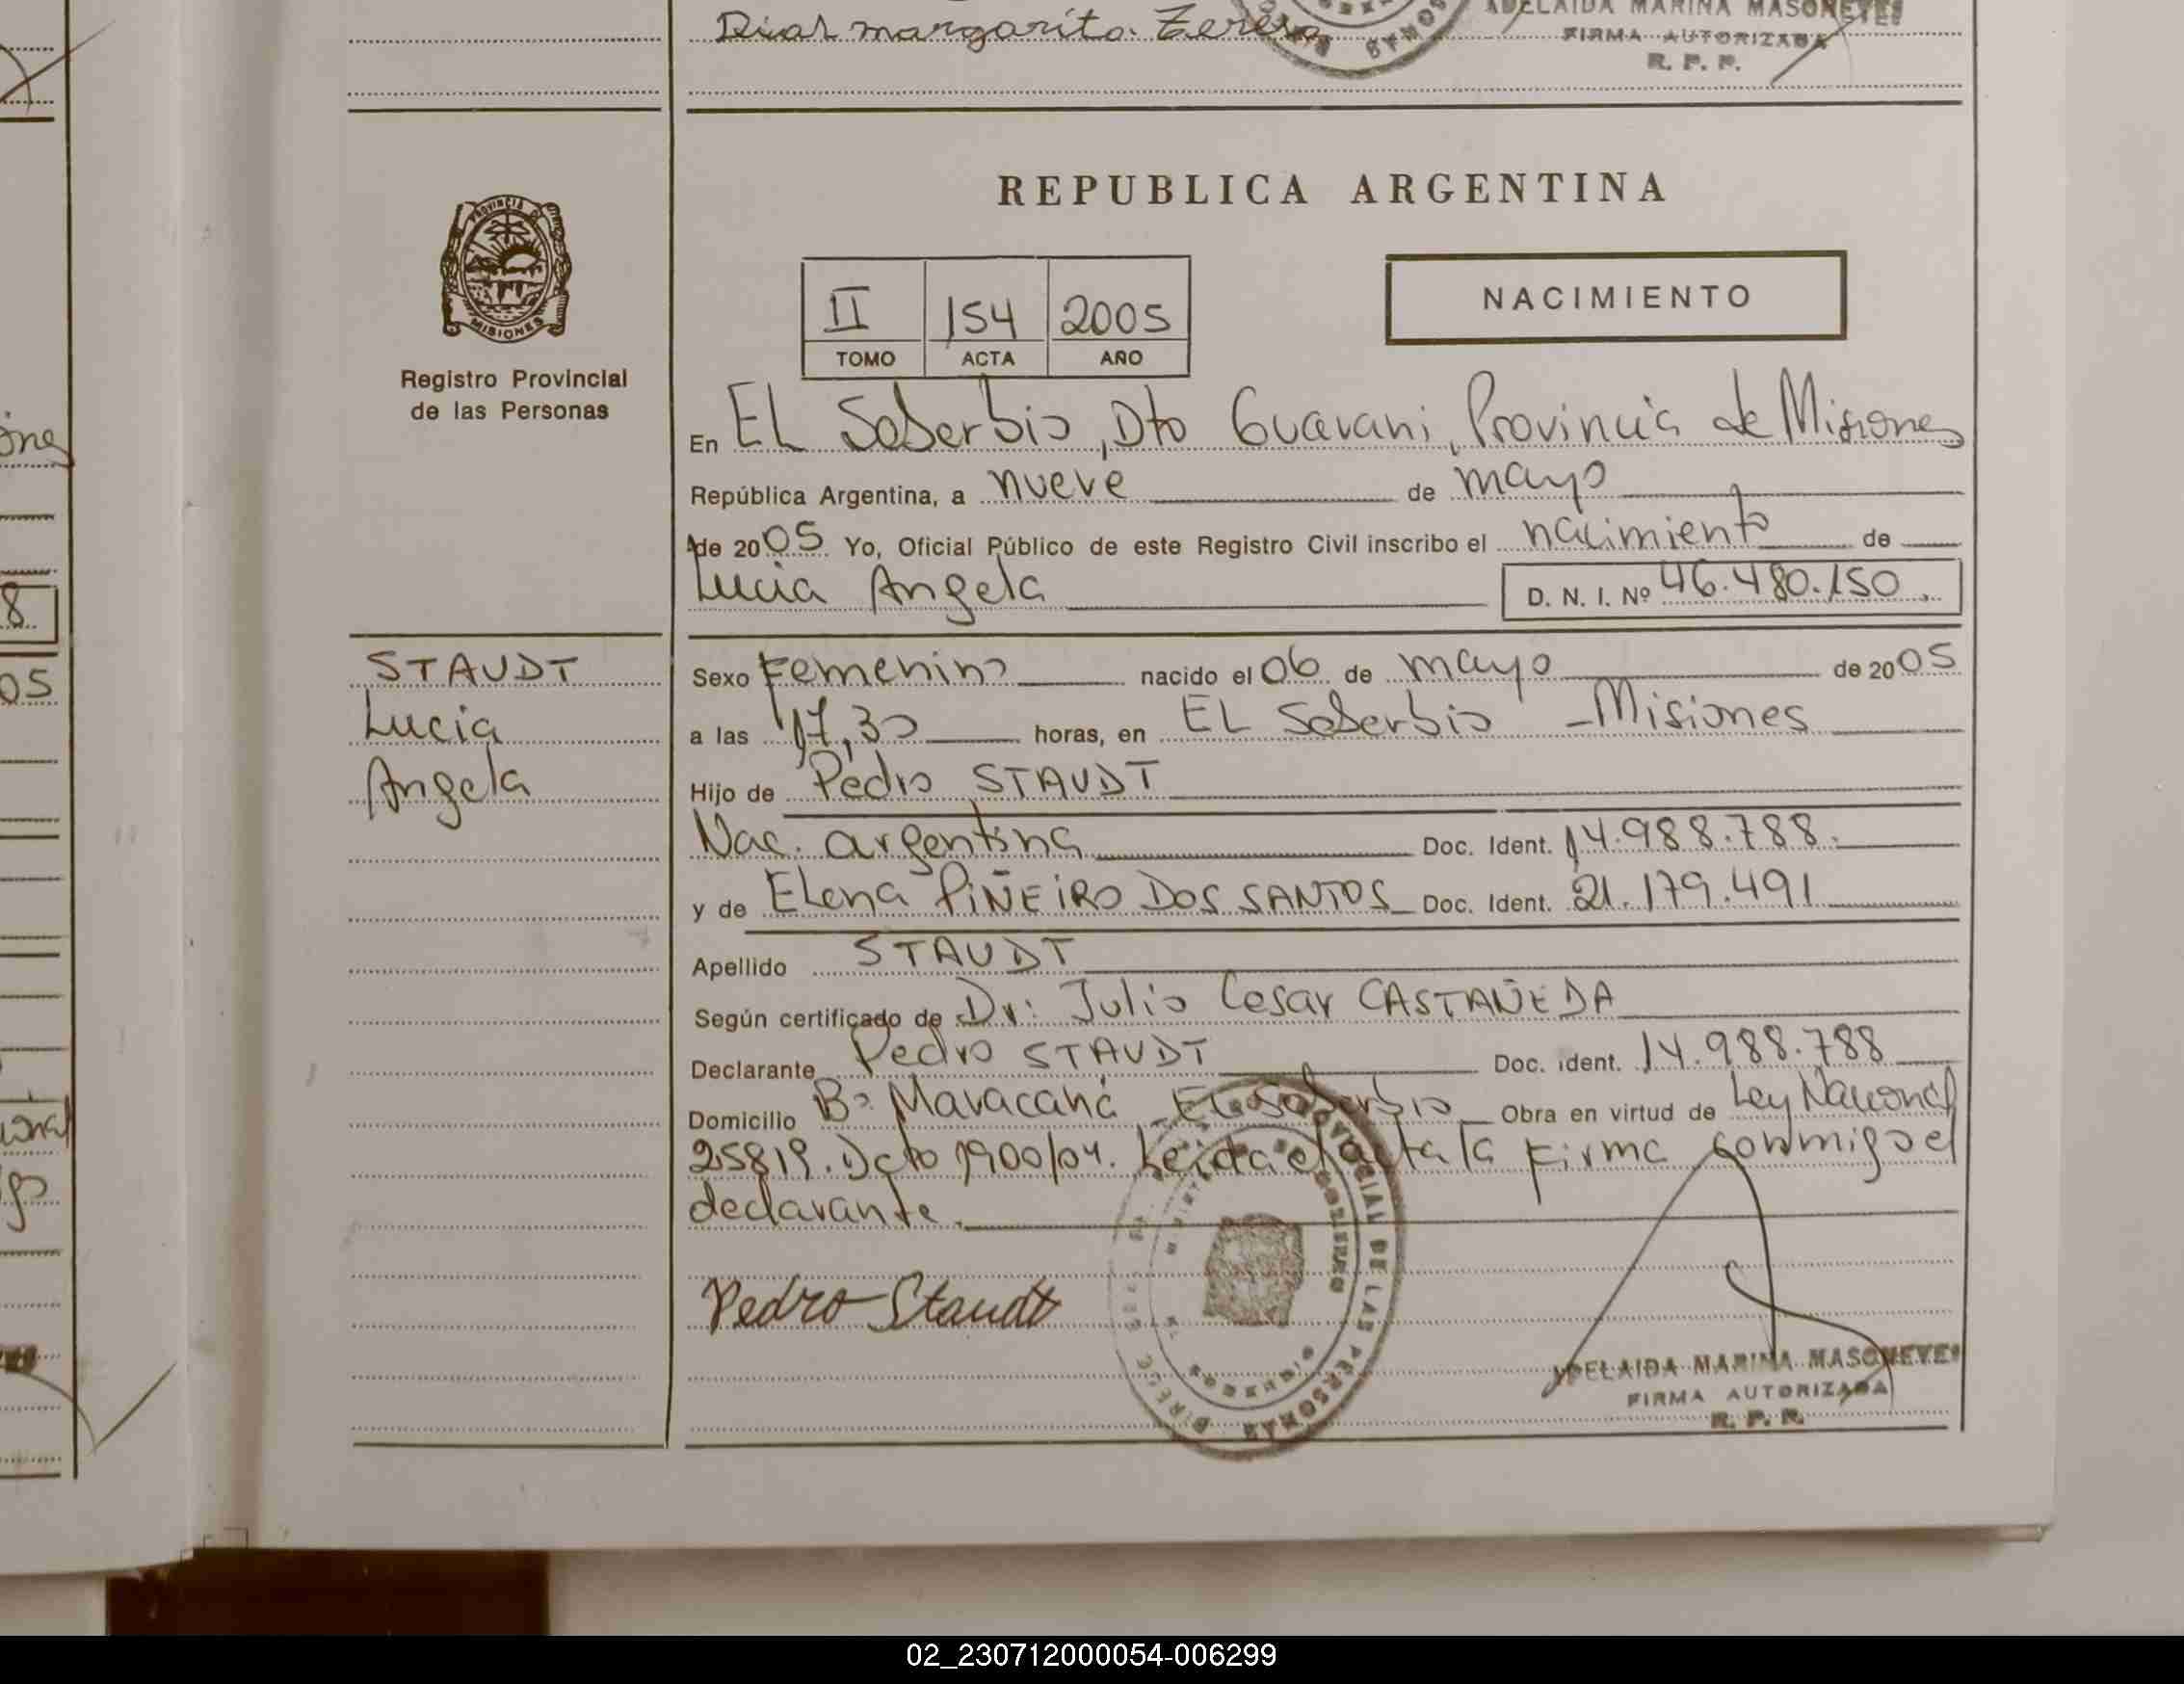 Diaz margarita Tereza
ADELAIDA MARINA MASONEYES
FIRMA AUTORIZADA
R. P. P.
REPUBLICA ARGENTINA
PROVINCIA DE
MISIONES
Registro Provincial
de las Personas
II 154 2005
TOMO ACTA AÑO
NACIMIENTO
En EL Soberbio, Dto Guarani, Provincia de Misiones
República Argentina, a nueve de mayo
de 2005 Yo, Oficial Público de este Registro Civil inscribo el nacimiento de
Lucia Angela D. N. I. Nº 46.480.150
STAUDT
Lucia
Angela
Sexo Femenino nacido el 06 de mayo de 2005
a las 17,30 horas, en EL Soberbio - Misiones
Hijo de Pedro STAUDT
Nac. argentina Doc. Ident. 14.988.788.
y de Elena PIÑEIRO DOS SANTOS Doc. Ident. 21.179.491
Apellido STAUDT
Según certificado de Dr: Julio Cesar CASTAÑEDA
Declarante Pedro STAUDT Doc. ident. 14.988.788
Domicilio Bº Maracaná El Soberbio Obra en virtud de Ley Nacional
25819. Dcto 1900/04. Leida el acta la firma conmigo el
declarante.
Pedro Staudt
PROVINCIAL DE LAS PERSONAS
ADELAIDA MARINA MASONEYES
FIRMA AUTORIZADA
R. P. P.
02_230712000054-006299